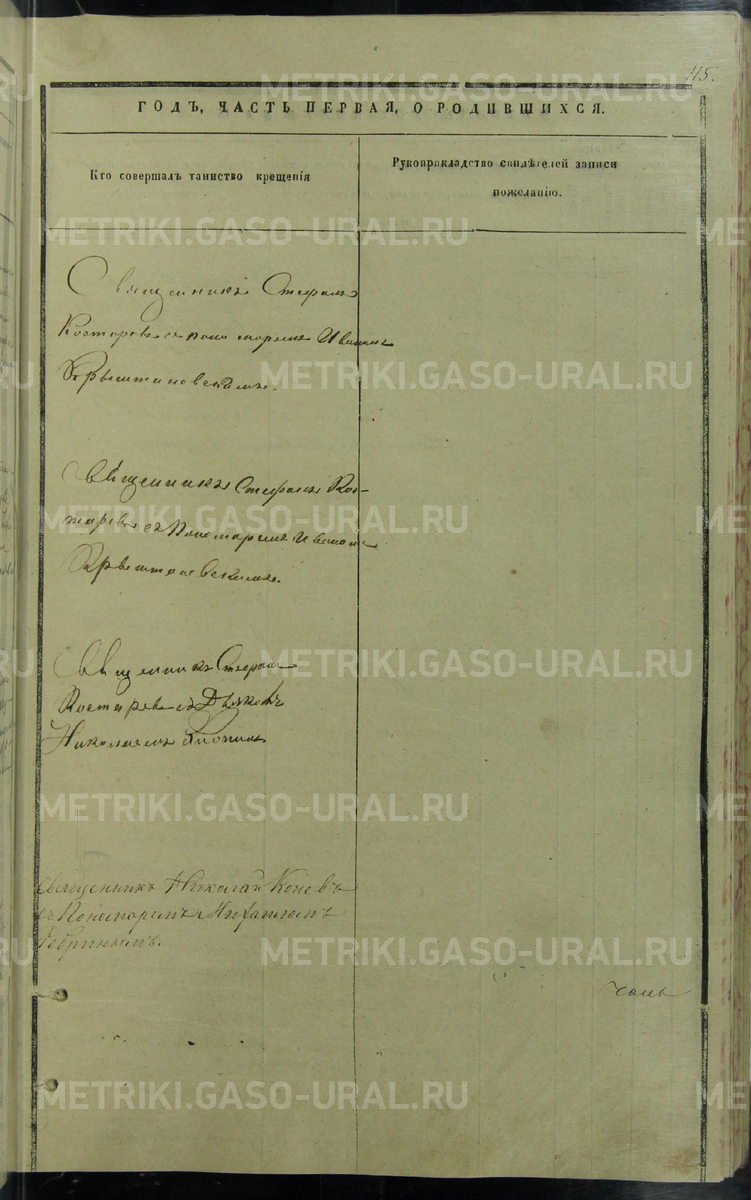 115.
ГОДЪ, ЧАСТЬ ПЕРВАЯ, О РОДИВШИХСЯ.
Кто совершалъ таинство крещенія
Рукоприкладство свидѣтелей записи
пожеланію.
Священникъ Стефанъ
Костаревъ съ пономаремъ Иваномъ
Священникъ Стефанъ Кос-
таревъ съ Пономаремъ Иваномъ
Священникъ Стефанъ
Костаревъ съ Дьякомъ
Николаемъ
Священникъ Николай Коневъ
съ Пономаремъ Михаиломъ
METRIKI.GASO-URAL.RU